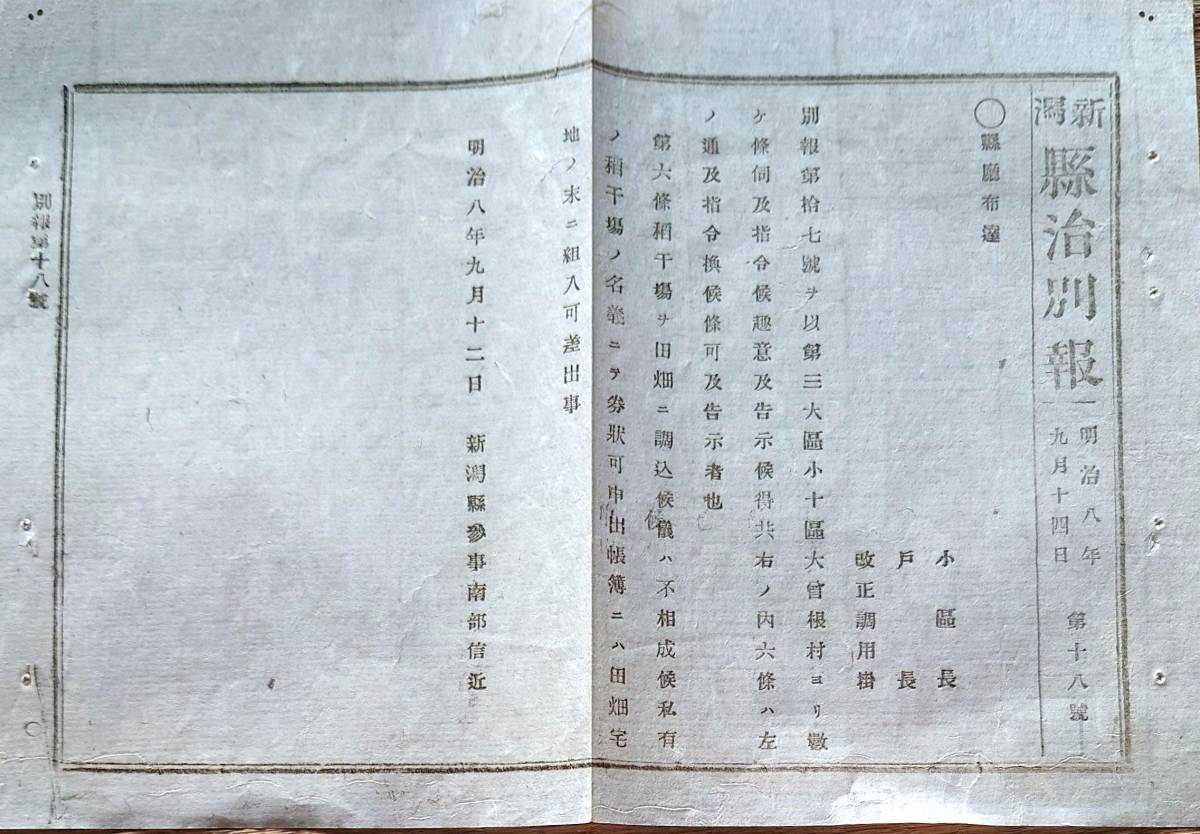 新潟縣治別報
明治八年九月十四日 第十八號
〇縣廳布達
小區長
戸長
改正調用掛
別報第拾七號ヲ以第三大區小十區大曾根村ヨリ數
ケ條伺及指令候趣意及告示候得共右ノ內六條ハ左
ノ通及指令換候條可及告示者也
第六條稻干塲ヲ田畑ニ調込候儀ハ不相成候私有
ノ稻干塲ノ名義ニテ劵狀可申出帳簿ニハ田畑宅
地ノ末ニ組入可差出事
明治八年九月十二日 新潟縣參事南部信近